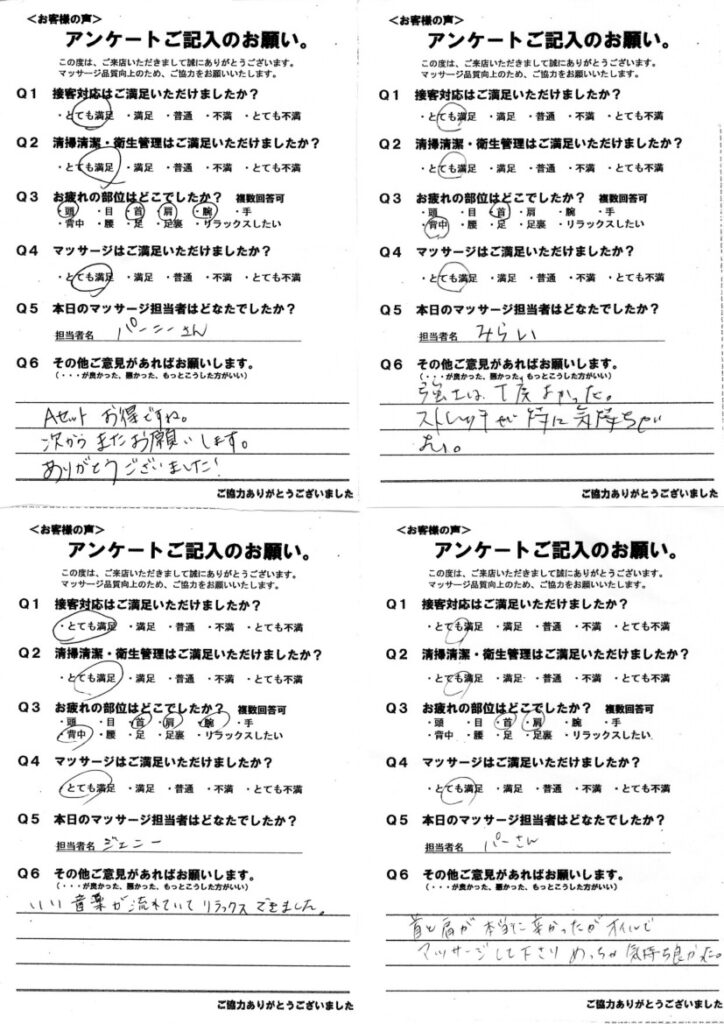 <お客様の声>
アンケートご記入のお願い。
この度は、ご来店いただきまして誠にありがとうございます。
マッサージ品質向上のため、ご協力をお願いいたします。
Q1 接客対応はご満足いただけましたか?
・とても満足 ・満足 ・普通 ・不満 ・とても不満
Q2 清掃清潔・衛生管理はご満足いただけますか?
・とても満足 ・満足 ・普通 ・不満 ・とても不満
Q3 お疲れの部位はどこでしたか? 複数回答可
・頭 ・目 ・首 ・肩 ・腕 ・手
・背中 ・腰 ・足 ・足裏 ・リラックスしたい
Q4 マッサージはご満足いただけましたか?
・とても満足 ・満足 ・普通 ・不満 ・とても不満
Q5 本日のマッサージ担当者はどなたでしたか?
担当者名 パーニーさん
Q6 その他ご意見があればお願いします。
(・・・が良かった、悪かった、もっとこうした方がいい)
Aセット お得ですね。
次からまたお願いします。
ありがとうございました!
ご協力ありがとうございました
<お客様の声>
アンケートご記入のお願い。
この度は、ご来店いただきまして誠にありがとうございます。
マッサージ品質向上のため、ご協力をお願いいたします。
Q1 接客対応はご満足いただけましたか?
・とても満足 ・満足 ・普通 ・不満 ・とても不満
Q2 清掃清潔・衛生管理はご満足いただけましたか?
・とても満足 ・満足 ・普通 ・不満 ・とても不満
Q3 お疲れの部位はどこでしたか? 複数回答可
・頭 ・目 ・首 ・肩 ・腕 ・手
・背中 ・腰 ・足 ・足裏 ・リラックスしたい
Q4 マッサージはご満足いただけましたか?
・とても満足 ・満足 ・普通 ・不満 ・とても不満
Q5 本日のマッサージ担当者はどなたでしたか?
担当者名 みらい
Q6 その他ご意見があればお願いします。
(・・・が良かった、悪かった、もっとこうした方がいい)
強さは丁度よかった。
ストレッチが特に気持ちが
ご協力ありがとうございました
<お客様の声>
アンケートご記入のお願い。
この度は、ご来店いただきまして誠にありがとうございます。
マッサージ品質向上のため、ご協力をお願いいたします。
Q1 接客対応はご満足いただけましたか?
・とても満足 ・満足 ・普通 ・不満 ・とても不満
Q2 清掃清潔・衛生管理はご満足いただけましたか?
・とても満足 ・満足 ・普通 ・不満 ・とても不満
Q3 お疲れの部位はどこでしたか? 複数回答可
・頭 ・目 ・首 ・肩 ・腕 ・手
・背中 ・腰 ・足 ・足裏 ・リラックスしたい
Q4 マッサージはご満足いただけましたか?
・とても満足 ・満足 ・普通 ・不満 ・とても不満
Q5 本日のマッサージ担当者はどなたでしたか?
担当者名 ジェニー
Q6 その他ご意見があればお願いします。
(・・・が良かった、悪かった、もっとこうした方がいい)
いい音楽が流れていてリラックスできました。
ご協力ありがとうございました
<お客様の声>
アンケートご記入のお願い。
この度は、ご来店いただきまして誠にありがとうございます。
マッサージ品質向上のため、ご協力をお願いいたします。
Q1 接客対応はご満足いただけましたか?
・とても満足 ・満足 ・普通 ・不満 ・とても不満
Q2 清掃清潔・衛生管理はご満足いただけましたか?
・とても満足 ・満足 ・普通 ・不満 ・とても不満
Q3 お疲れの部位はどこでしたか? 複数回答可
・頭 ・目 ・首 ・肩 ・腕 ・手
・背中 ・腰 ・足 ・足裏 ・リラックスしたい
Q4 マッサージはご満足いただけましたか?
・とても満足 ・満足 ・普通 ・不満 ・とても不満
Q5 本日のマッサージ担当者はどなたでしたか?
担当者名 パーさん
Q6 その他ご意見があればお願いします。
(・・・が良かった、悪かった、もっとこうした方がいい)
首と肩が本当に辛かったがオイルで
マッサージして下さりめっちゃ気持ち良かった。
ご協力ありがとうございました